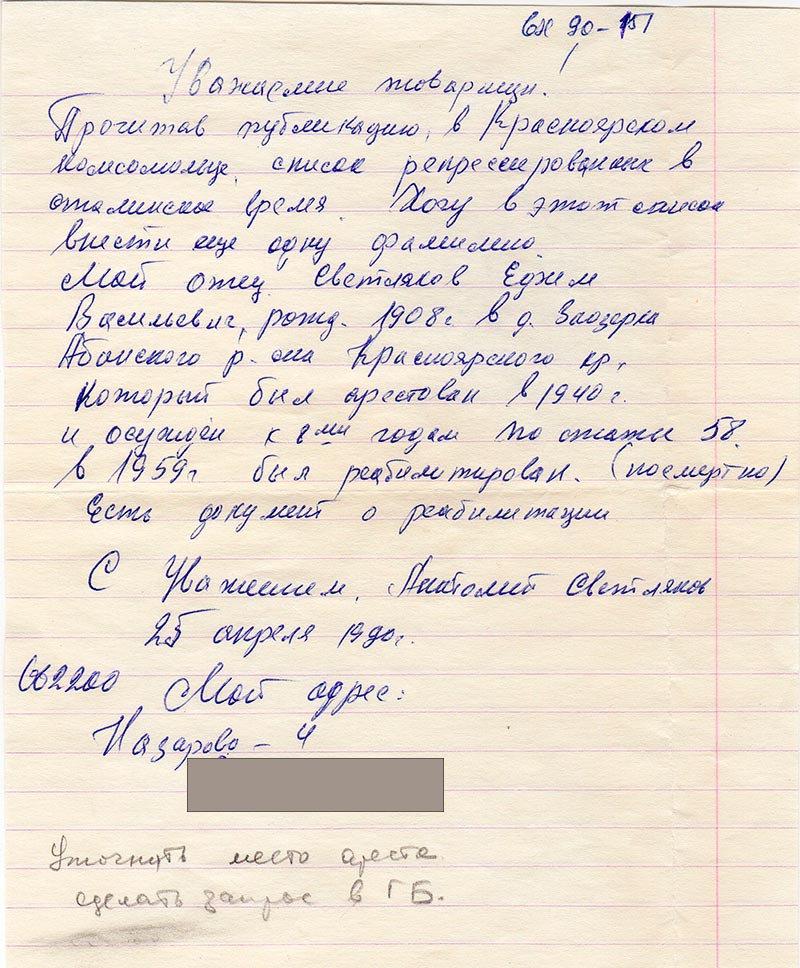 вх 90-151
Уважаемые товарищи!
Прочитав публикацию, в Красноярском
комсомольце, список репрессированных в
сталинское время. Хочу в этот список
внести еще одну фамилию.
Мой отец Светляков Ефим
Васильевич, рожд. 1908г в д. Заозерка
Абанского р-она Красноярского кр,
который был арестован в 1940г.
и осужден к 8ми годам по статье 58.
в 1959г был реабилитирован. (посмертно)
Есть документ о реабилитации
С Уважением, Анатолий Светляков
25 апреля 1990г.
662200 Мой адрес:
Назарово - 4
Уточнить место ареста
сделать запрос в ГБ.